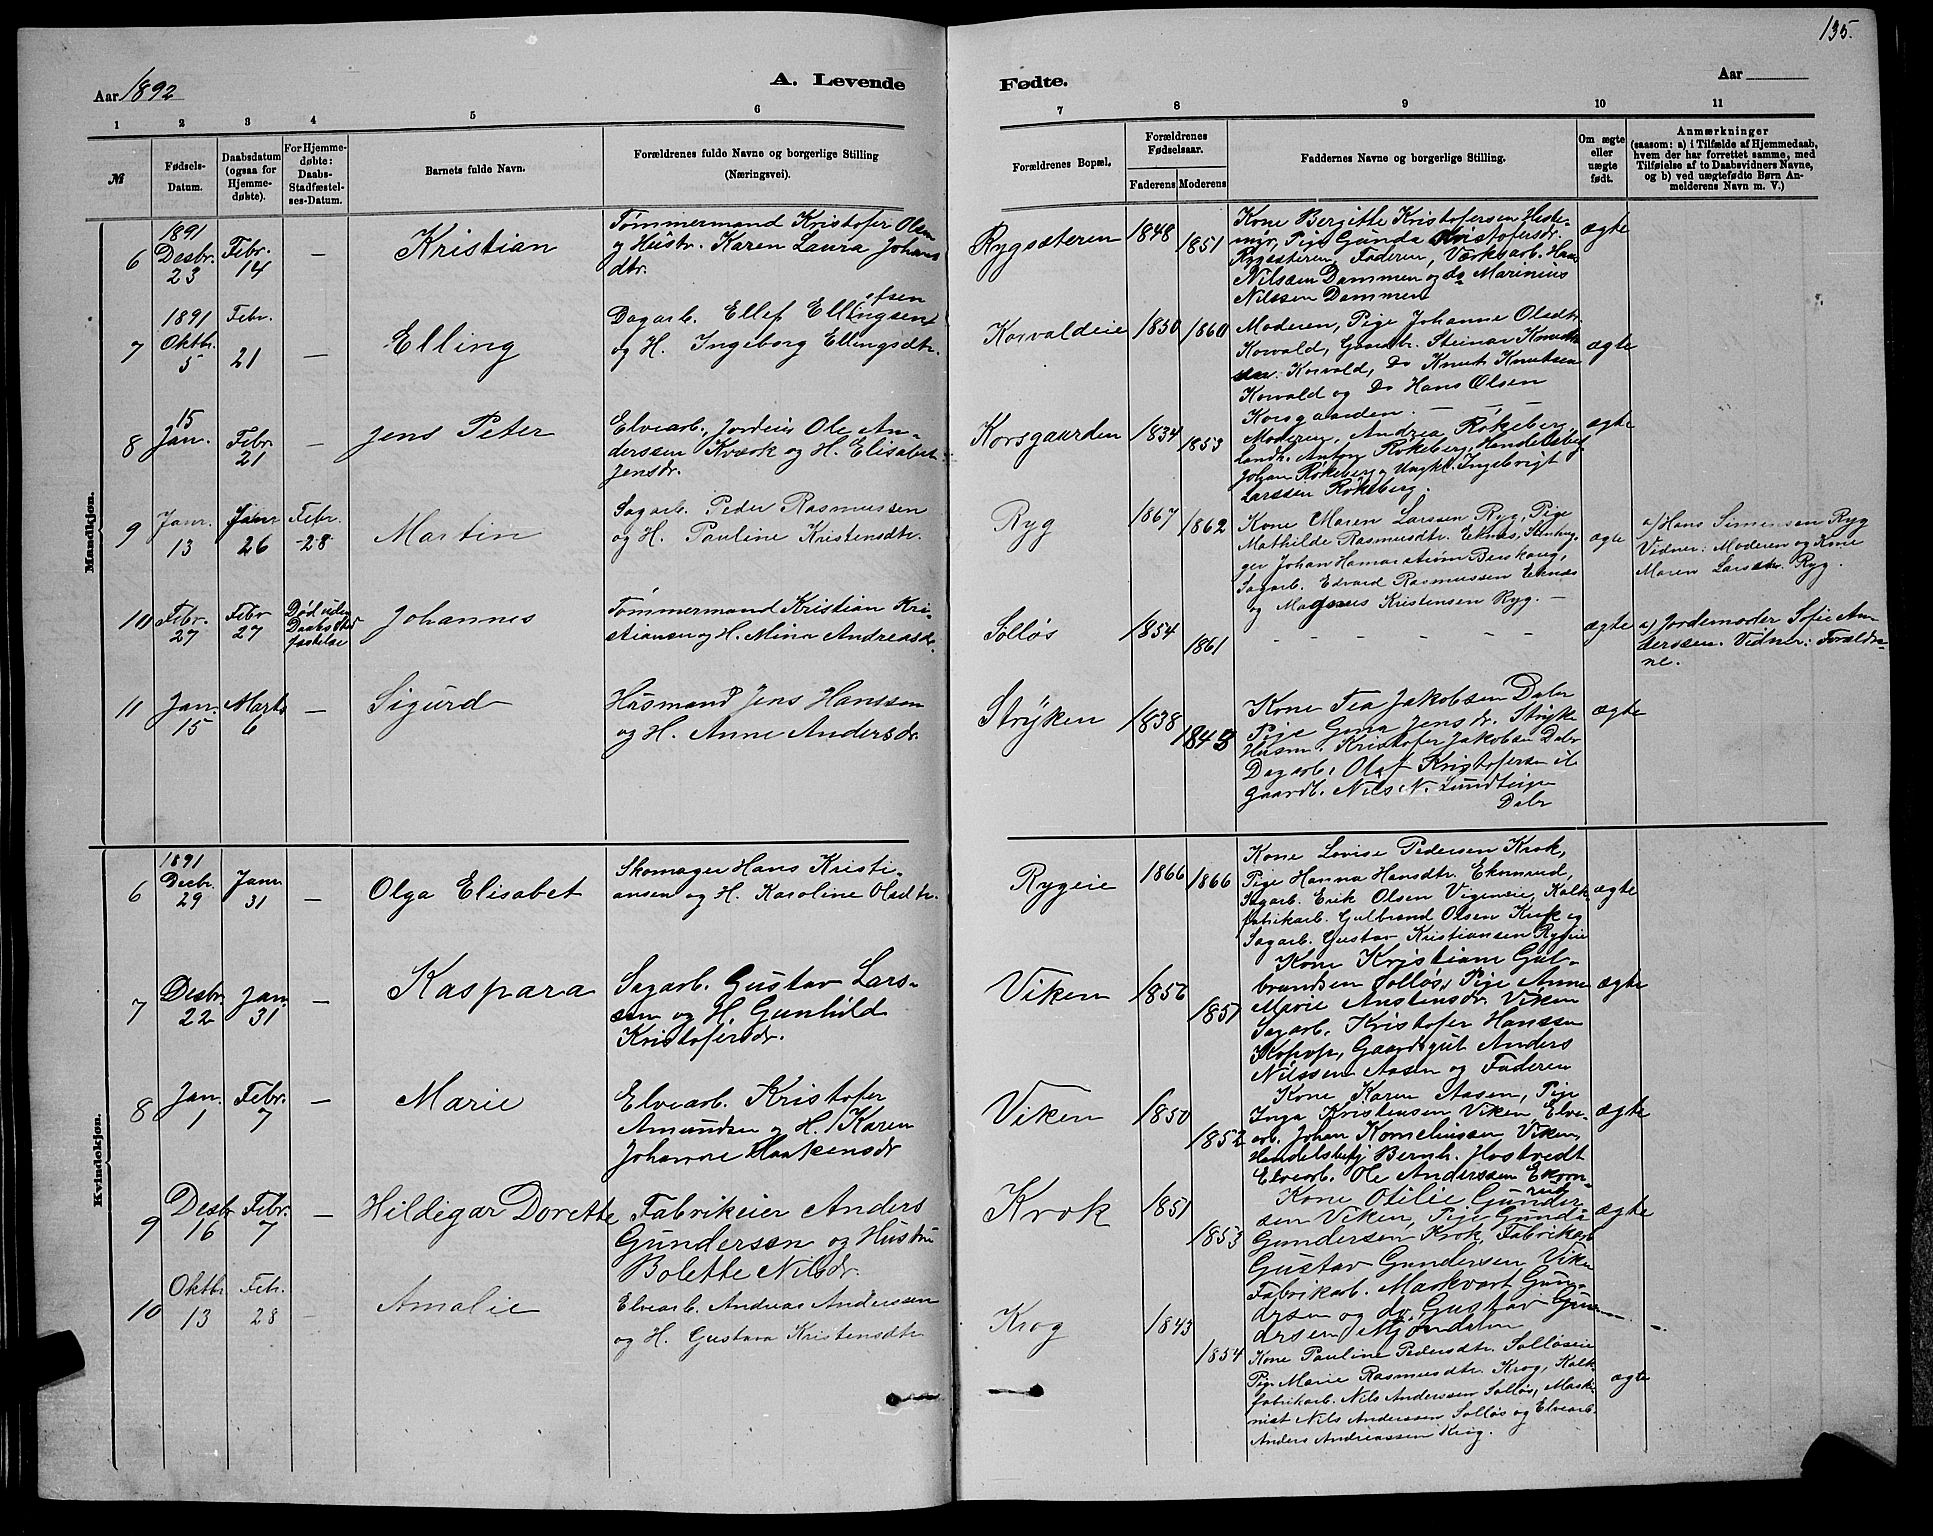 135.
Aar 1892
A. Levende
Fødte.
Aar
1 2 3 4 5 6 7 8 9 10 11
№
Fødsels-
Datum.
Daabsdatum
(ogsaa for
Hjemme-
døbte).
For Hjemme-
døbte:
Daabs-
Stadfæstel-
ses-Datum.
Barnets fulde Navn.
Forældrenes fulde Navne og borgerlige Stilling
(Næringsvei).
Forældrenes Bopæl.
Forældrenes
Fødselsaar.
Faderens Moderens
Faddernes Navne og borgerlige Stilling.
Om ægte
eller
uægte
født.
Anmærkninger
(saasom: a) i Tilfælde af Hjemmedaab,
hvem der har forrettet samme, med
Tilføielse af to Daabsvidners Navne,
og b) ved uægtefødte Børn An-
melderens Navn m. V.)
Mandkjøn.
6
1891
Desbr.
23
Febr.
14
—
Kristian
Tømmermand Kristofer Olsen
og Hustr. Karen Laura Johans
dtr.
Rygsæteren
1848
1851
Kone Bergitte Kristofersen
Pige Gunda Kristofersdr.
Rygsæteren, Faderen, Værksarb. Hans
Nilssen Dammen og do Marinius
Nilssen Dammen
ægte
7
1891
Oktbr.
5
Febr.
21
—
Elling
Dagarb. Ellef Ellingsen
og H. Ingeborg Ellingsdtr.
Korvaldeie
1850
1860
Moderen, Pige Johanne Olsdtr.
Korvald, Gaardbr. Steinar Knudt
sen Korvald, Do Knut Knutsen
Korvald og Do Hans Olsen
Korsgaarden.
ægte
8
15
Jan.
Febr
21
—
Jens Peter
Elvearb. Jordeier Ole An-
derssen Kværk og H. Elisabet
Jensdr.
Korsgaarden
1834
1853
Moderen, Andrea Røkeberg,
Landh. Anton Røkeberg, Handelsbetj
Johan Røkeberg, Ungkl. Ingebrigt
Larssen Røkeberg.
ægte
9
Janr.
13
Janr
26
Febr.
28
Martin
Sagarb. Peder Rasmussen
og H. Pauline Kristensdtr.
Ryg
1867
1862
Kone Maren Larssen Ryg, Pige
Mathilde Rasmusdtr. Eknæs,
ger Johan Hamarstrøm
Sagarb. Edvard Rasmussen Eknæs
og Magnus Kristensen Ryg. —
ægte
a) Hans Simensen Ryg
Vidner: Moderen og Kone
Maren Larsdtr. Ryg.
10
Febr.
27
Febr
27
Død uden
Daabsstad
fæstelse
Johannes
Tømmermand Kristian Kri-
stiansen og H. Mina Andreasdr.
Solløs
1854
1861
- - - - - -
ægte
a) Jordemoder Sofie An-
derssen. Vidner: Forældre-
ne.
11
Jan.
15
Marts
6
—
Sigurd
Husmand Jens Hanssen
og H. Anne Andersdr.
Stryken
1838
1843
Kone Tea Jakobsen Daler
Pige Gina Jensdr. Stryke
Husm. Kristofer Jakobsen Daler
Dagarb. Olaf Kristofersen
Gaardb. Nils N. Lundteigen
Daler
ægte
Kvindekjøn.
6
1891
Decbr.
29
Janr
31
—
Olga Elisabet
Skomager Hans Kristi-
ansen og H. Karoline Olsdtr.
Rygeie
1866
1866
Kone Lovise Pedersen Krok,
Pige Hanna Hansdtr. Ekornrud,
Sagarb. Erik Olsen Vigeneie, Kalk-
fabrikarb. Gulbrand Olsen Krok og
Sagarb. Gustav Kristiansen Rygeie
ægte
7
Desbr.
22
Jan.
31
—
Kaspara
Sagarb. Gustav Lars-
sen og H. Gunhild
Kristofersdr.
Viken
1856
1851
Kone Kristiane Gul-
brandsen Solløs, Pige Anne
Marie Anstensdr. Viken
Sagarb. Kristofer Hanssen
Kopop, Gaardsgut Anders
Nilssen Aasen og Faderen
ægte
8
Jan.
1
Febr.
7
—
Marie
Elvearb. Kristofer
Amundsen og H. Karen
Johanne Haakensdr
Viken
1850
1852
Kone Karen Aasen, Pige
Inga Kristensen Viken, Elve-
arb. Johan Korneliussen Viken,
Handelsbetj Bernh. Hostvedt
Elvearb. Ole Anderssen Ekorn-
rud
ægte
9
Desbr
16
Febr.
7
—
Hildegar Dorette
Fabrikeier Anders
Gundersen og Hustru
Bolette Nilsdr.
Krok
1851
1853
Kone Otilie Gunder-
sen Viken, Pige Gunda
Gundersen Krok, Fabrikarb
Gustav Gundersen Viken
Fabrikarb. Markvart Gun-
dersen og do. Gustav Gun-
dersen Mjøndalen
ægte
10
Oktbr
13
Febr.
28
—
Amalie
Elvearb. Andreas Anderssen
og H. Gustava Kristensdtr
Krog
1843
1854
Kone Pauline Pedersdtr. Solløseie
Pige Marie Rasmusdtr. Krog, Kalk-
fabrikarb. Nils Anderssen Solløs, Maski-
nist Nils Anderssen Solløs og Elvearb.
Anders Andreassen Krog.
ægte